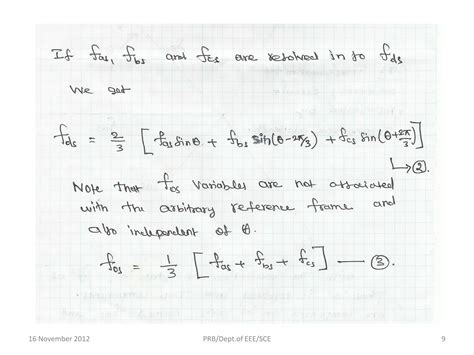 If fas, fbs and fcs are resolved in to fds
we get
fds = 2/3 [ fas sinθ + fbs sin(θ-2π/3) + fcs sin(θ+2π/3) ]
↳ ②.
Note that fos variables are not associated
with the arbitrary reference frame and
also independent of θ.
fos = 1/3 [ fas + fbs + fcs ] — ③.
16 November 2012 PRB/Dept.of EEE/SCE 9